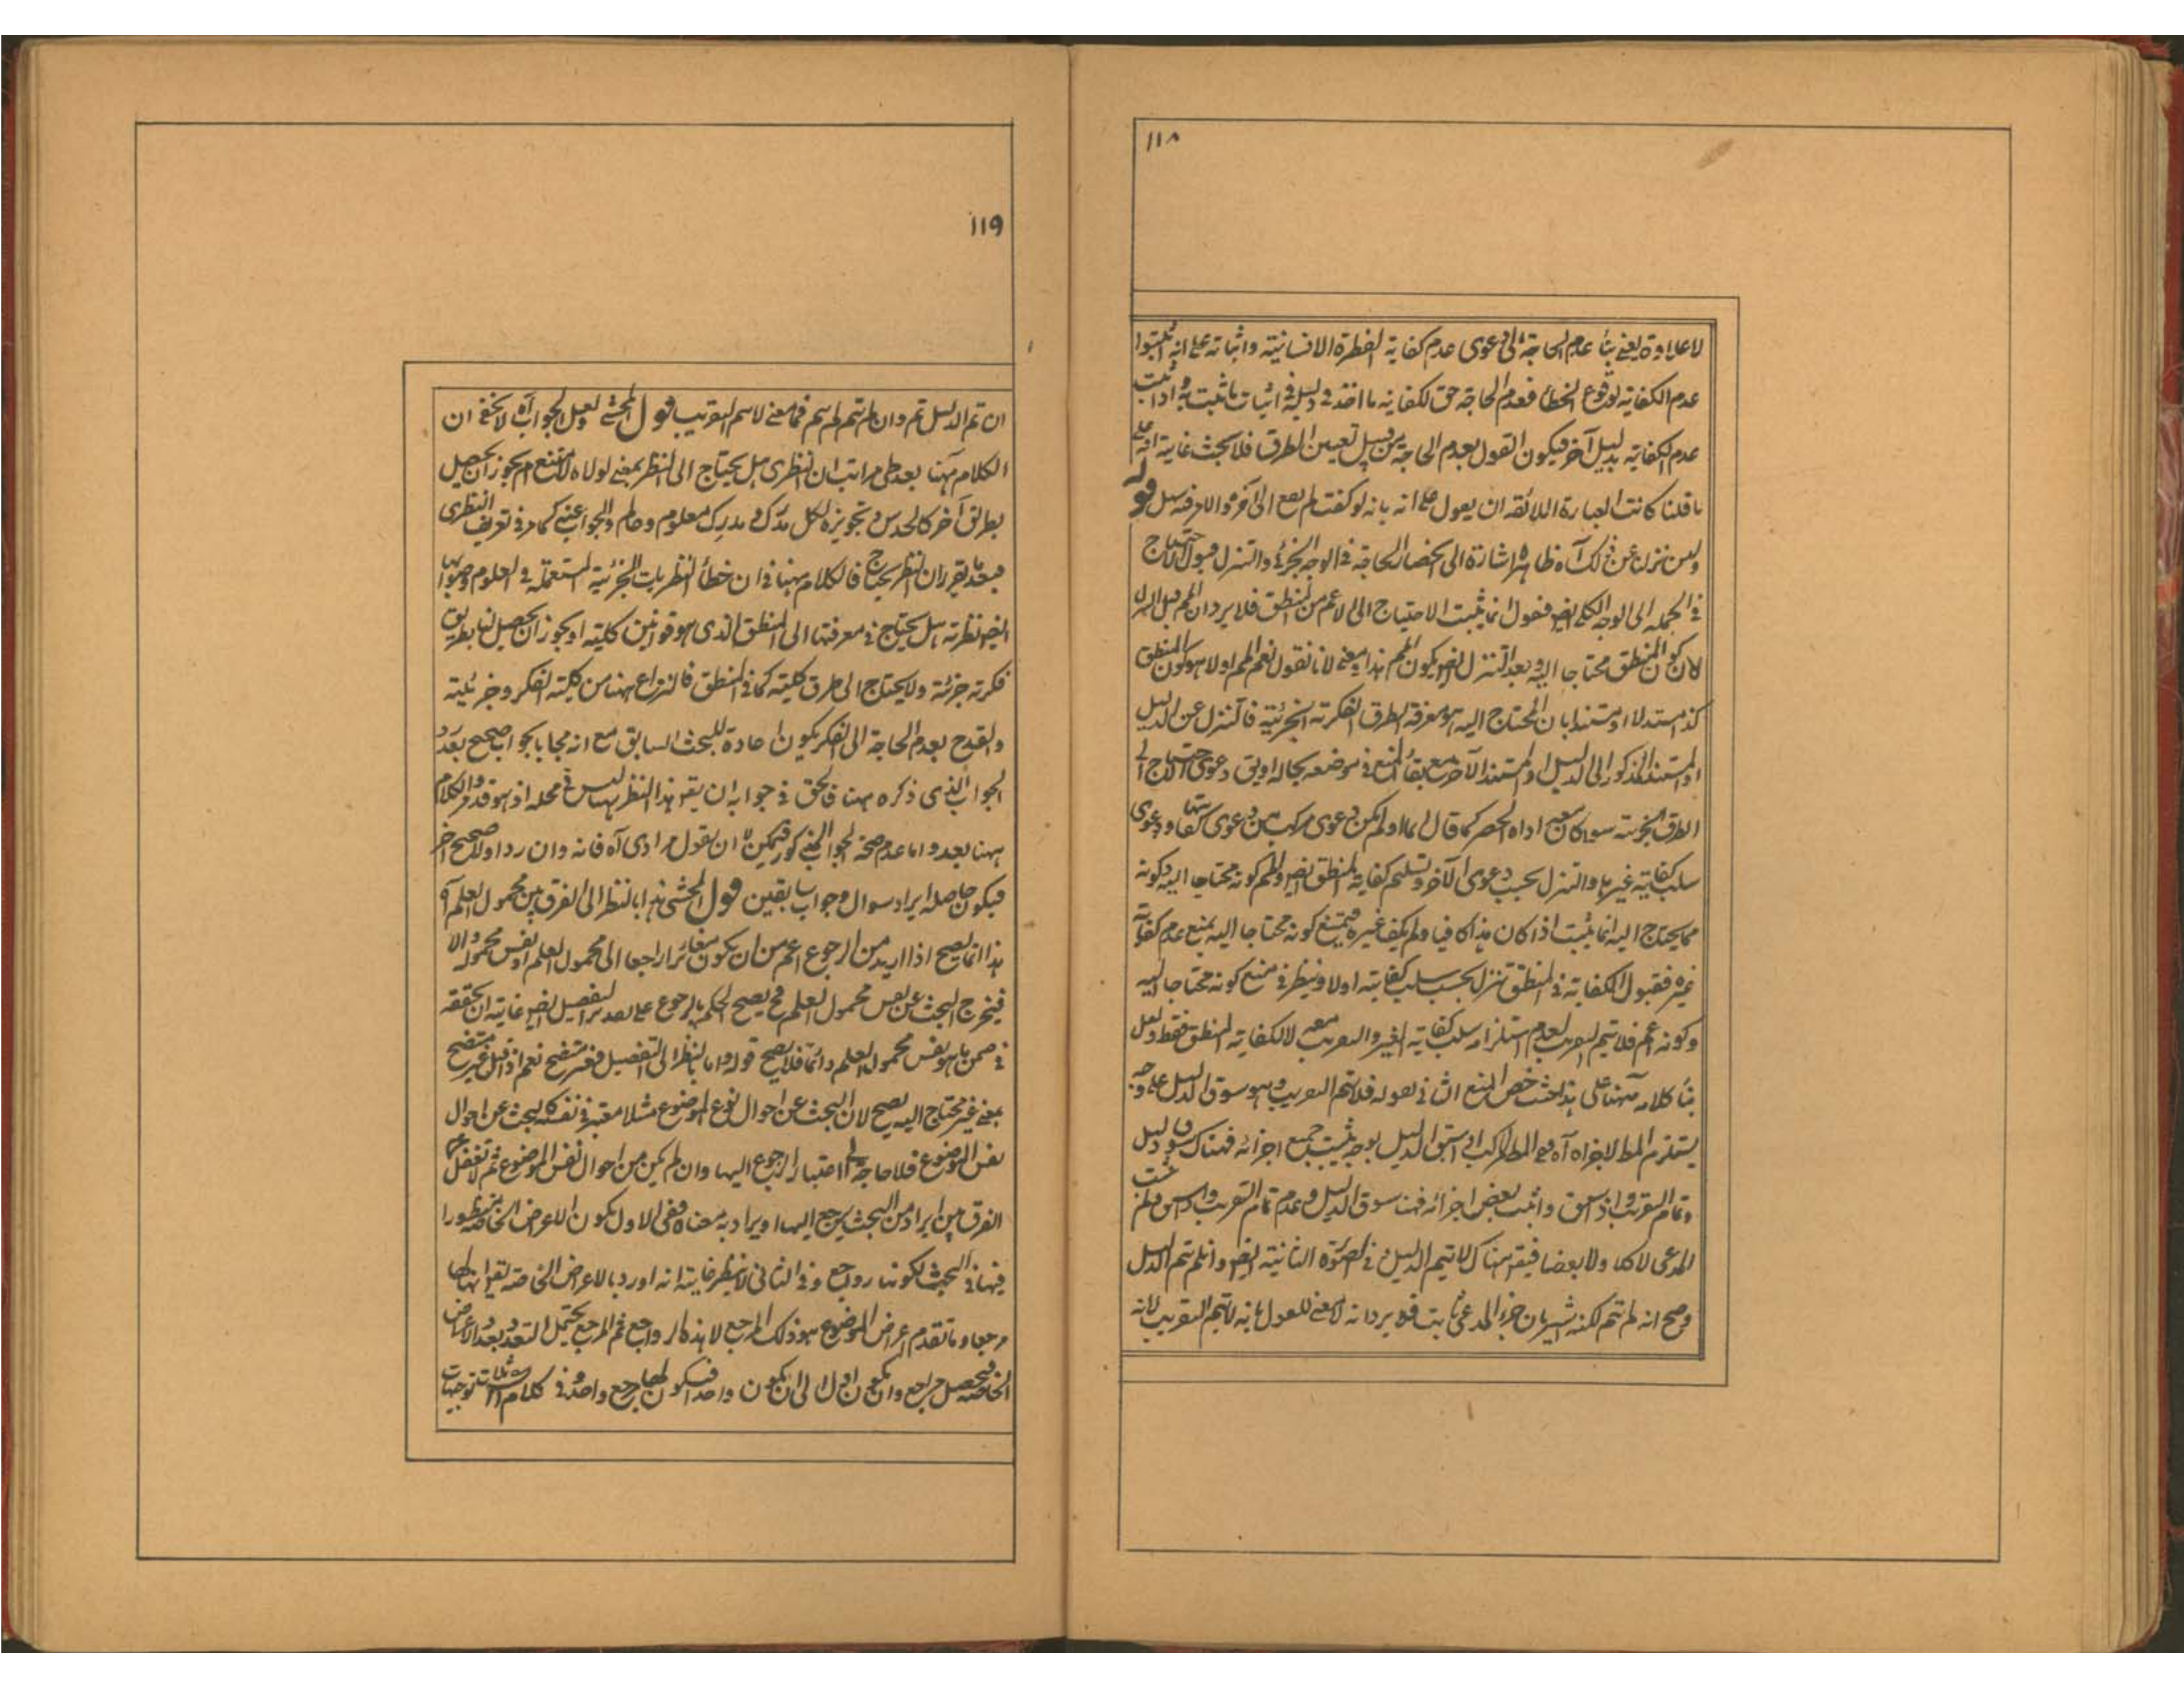 ١١٨
لا علاوة يعني بناء عدم الحاجة الى دعوى عدم كفاية الفطرة الانسانية واثباته على انه اثبتوا
عدم الكفاية بوقوع الخطأ فعدم الحاجة حق لكفاية ما اخذ في دليله في اثبات ما ثبت به واذا اثبت
عدم الكفاية بدليل آخر فيكون القول بعدم الحاجة من قبيل تعيين الطرق فلا بحث غاية انه على
ما قلنا كانت العبارة اللائقة ان يقول على انه بانه لو كفت لم يقع الى آخره والامر فيه سهل قوله
ولئن نزل عن ذلك آه ظاهره اشارة الى انحصار الحاجة في الوجه الجزئي والتنزل قبول الاحتياج
في الجملة الى الوجه الكلي ايضا فنقول انما يثبت الاحتياج الى الاعم من المنطق فلا يرد ان المهم قبل التنزل
لان كون المنطق محتاجا اليه وبعد التنزل ايضا يكون المهم هذا ومعنى لانا نقول نعم المهم اولا هو كون المنطق
كذا مستدلا او مستندا بان المحتاج اليه هو معرفة الطرق الفكرية الجزئية فالتنزل عن الدليل
او المستند المذكور الى الدليل او المستند الآخر مع بقاء المنع في موضعه بحاله او يق دعوى احتياج الى
الطرق الجزئية سواء كان مع اداة الحصر كما قال انما او لم يكن دعوى مركب من دعوى كفايتها ودعوى
سلب كفاية غيرها والتنزل بحسب دعوى الآخر وتسليم كفاية المنطق ايضا والمهم كونه محتاجا اليه وكونه
مما يحتاج اليه انما يثبت اذا كان هذا كافيا ولم يكف غيره فيمتنع كونه محتاجا اليه بمنع عدم كفاية
غيره فقبول الكفاية في المنطق تنزل بحسب سلب كفايته اولا وينظر في منع كونه محتاجا اليه
وكونه اعم فلا يتم التقريب لعدم استلزامه سلب كفاية الغير والتقريب معه لا لكفاية المنطق فقط ولعل
بناء كلامه ههنا على هذا حيث خص المنع الثاني بقوله فلا يتم التقريب وهو سوق الدليل على وجه
يستلزم المط لاجزاه آه ففي المط المركب اذا سبق الدليل بوجه يثبت جميع اجزائه فهناك سوق دليل
وتمام التقريب واذا سيق واثبت بعض اجزائه فهنا سوق الدليل وعدم تمام التقريب
المدعى لا كلا ولا بعضا فيقر هناك لا يتم الدليل في الصورة الثانية ايضا وان لم يتم الدليل
وصح انه لم يتم لكنه يشير بان جزء المدعى ثابت فلا يرد انه لا معنى للقول بانه لا يتم التقريب لانه
١١٩
ان تم الدليل تم وان لم يتم لم يتم فما معنى لا يتم التقريب قول المحشي ولعل الجواب آه لا يخفى ان
الكلام ههنا بعد طي مراتب ان النظري هل يحتاج الى النظر بمعنى لولاه لامتنع ام يجوز ان يحصل
بطريق آخر كالحدس وتجويزه لكل مدرك ومدرك معلوم وعالم والجواب عنه كما مر في تعريف النظري
فبعد ما يقرر ان النظر يحتاج فالكلام ههنا في ان خطأ النظريات الجزئية المستعملة في العلوم وصوابها
ايضا نظرية هل يحتاج في معرفتها الى المنطق الذي هو قوانين كلية او يجوز ان يحصل لنا بطريق
فكرية جزئية ولا يحتاج الى طرق كلية كما في المنطق فالنزاع ههنا من كلية الفكر وجزئيته
والقدح بعدم الحاجة الى الفكر يكون اعادة للبحث السابق مع انه مجابا بجواب صحيح بعد
الجواب الذي ذكره ههنا فالحق في جوابه ان يقر هذا النظر ههنا ليس في محله اذ هو قد مر والكلام
ههنا بعد واما عدم صحة الجواب المذكور فيمكن له ان يقول مرادي آه فانه وان رد اولا صحح آخر
فيكون حاصله ايراد سوال وجواب سابقين قول المحشي هذا بالنظر الى الفرق بين محمول العلم آه
هذا انما يصح اذا اريد من الرجوع اعم من ان يكون مغايرا راجعا الى محمول العلم او نفس محموله والا
فيخرج البحث عن نفس محمول العلم فح يصح الحكم بالرجوع على تقدير التفصيل ايضا غايته ان تحققه
في ضمن ما هو نفس محمول العلم دائما فلا يصح قوله واما بالنظر الى التفصيل فغير متضح نعم اذا قيل غير متضح
بمعنى غير محتاج اليه يصح لان البحث عن احوال نوع الموضوع مثلا معتبر في نفسه كالبحث عن احوال
نفس الموضوع فلا حاجة الى اعتبار الرجوع اليها وان لم يكن من احوال نفس الموضوع ثم لا تغفل عن
الفرق بين ايراد من البحث يرجع اليها او يراد به معناه ففي الاول يكون الاعراض الخاصة منظورا
فيها في البحث لكونها رواجع وفي الثاني لا ينظر غايته انه اورد بالاعراض الخاصة
مرجعا وما تقدم اعراض الموضوع هو ذلك المرجع لا هذه الرواجع ثم المرجع يحتمل التعدد بعدد الاعراض
الخاصة فيحصل مراجع وان يكون وان يكون واحدا فيكون لها مرجع واحد وفي كلام توجيهات